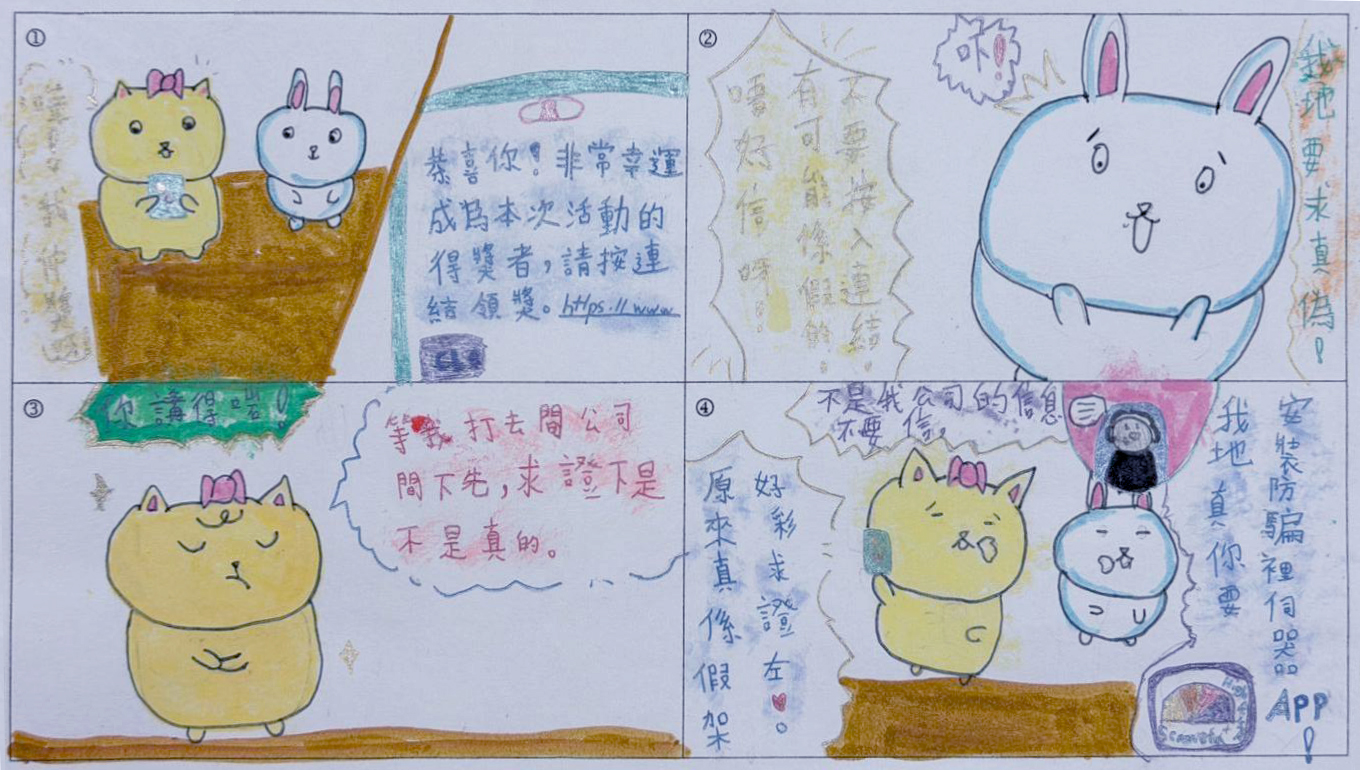 ①
我仲獎
恭喜你！非常幸運
成為本次活動的
得獎者，請按連
結領獎。https://www
②
吓！
我地要求真偽！
不要按入連結
有可能係假的.
唔好信呀..
③
你講得啱！
等我打去間公司
間下先，求證下是
不是真的。
④
不是我公司的信息
不要信。
好彩求證左。
原來真係假架
我地真你要
安裝防騙裡伺器
APP！